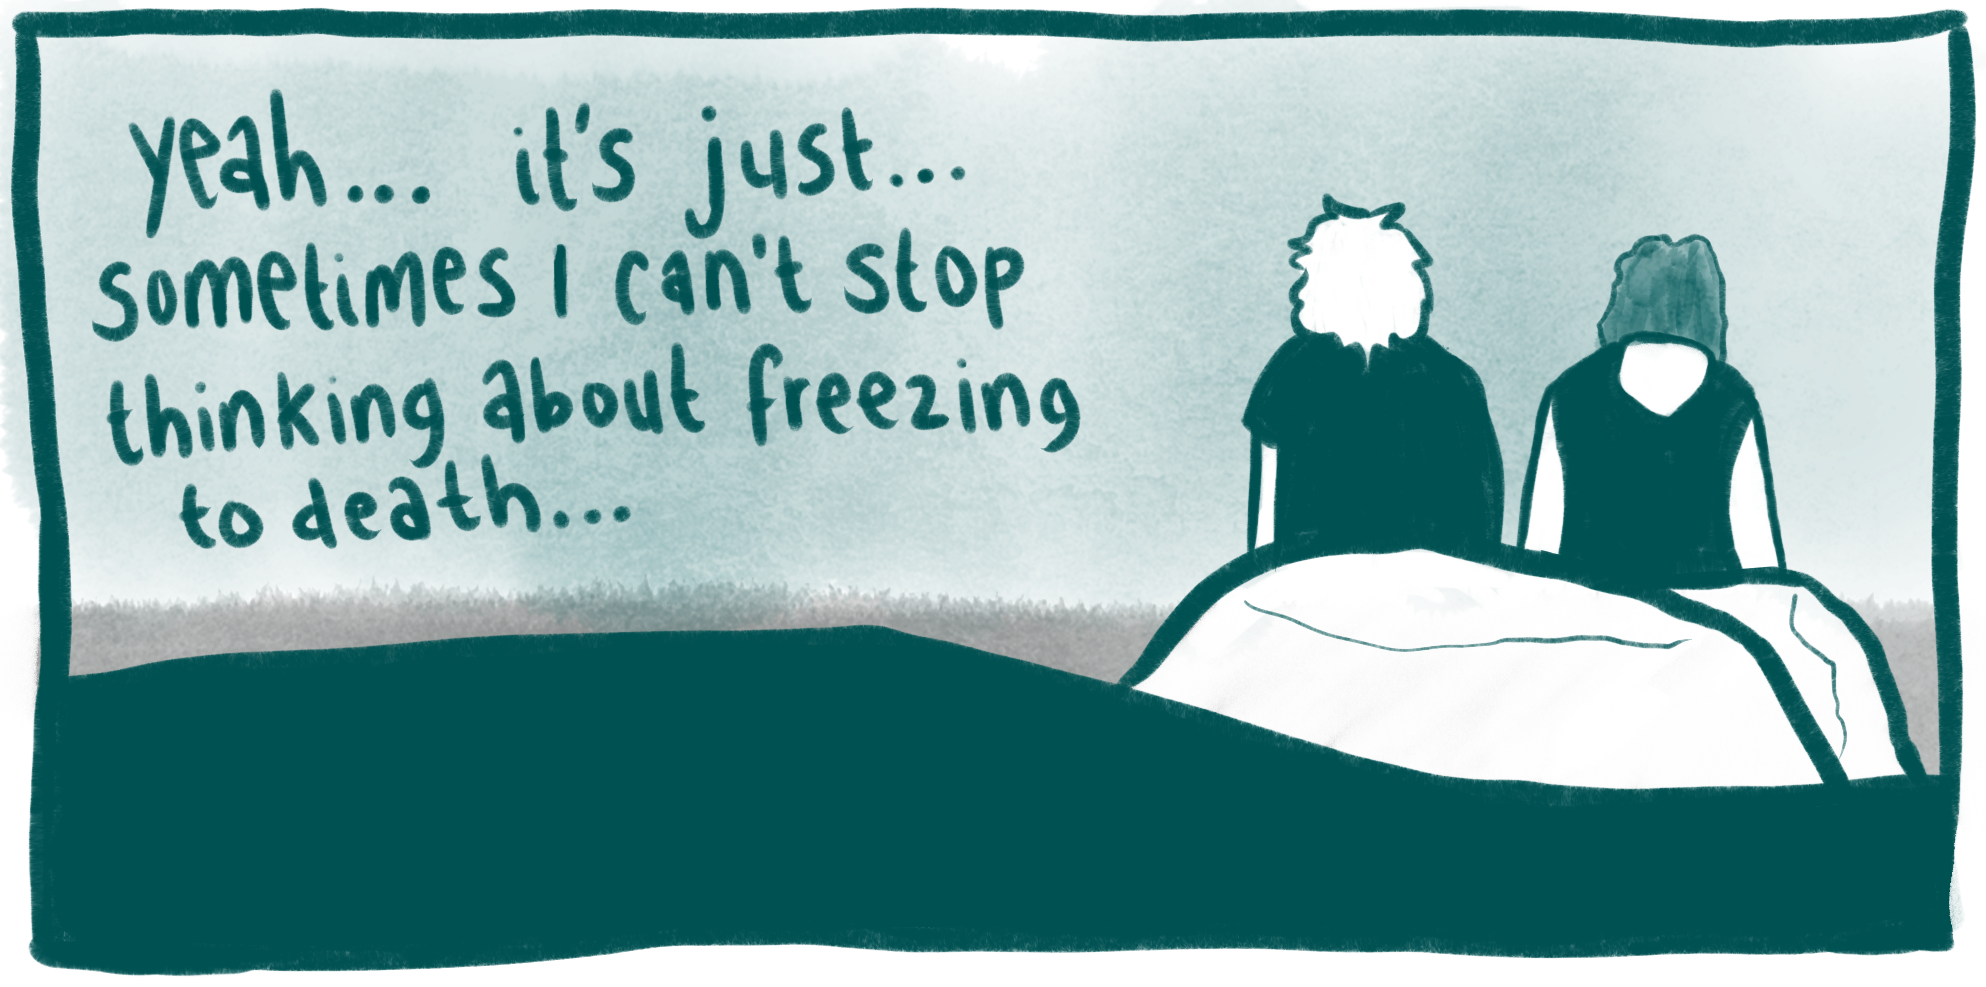 yeah... it's just...
sometimes I can't stop
thinking about freezing
to death...